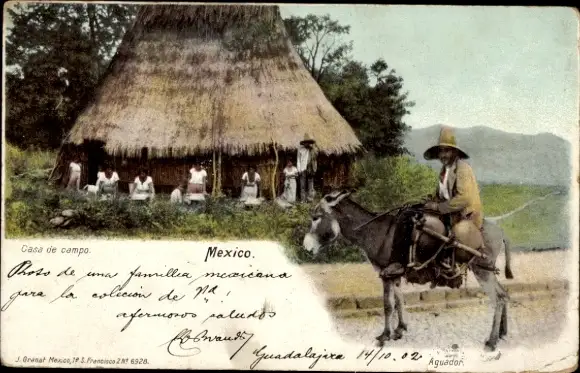 Casa de campo.
Mexico.
Photo de una famillea mexicana
para la coleccion de Vd!
afermosos saludos
Guadalajara 14/10. 02
J. Granat Mexico, 1ª S. Francisco 2 Nº 6928.
Aguador.